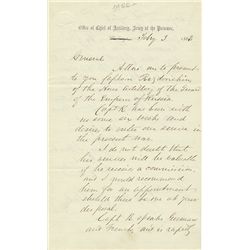 Office of Chief of Artillery, Army of the Potomac,
Feby 3 1862
General
Allow me to present
to you Captain
of the Horse Artillery of the Guard
of the Emperor of Russia
Capt R. has been with
us some six weeks and
desires to enter our service in
the present war.
I do not doubt that
his services will be valuable
if he receive a commission,
and I would recommend
him for an appointment
should there be one at your
disposal.
Capt. R. speaks German
and French and is rapidly